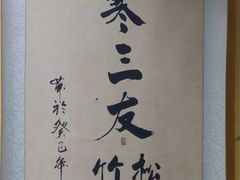 寒三友
松竹
於癸巳年